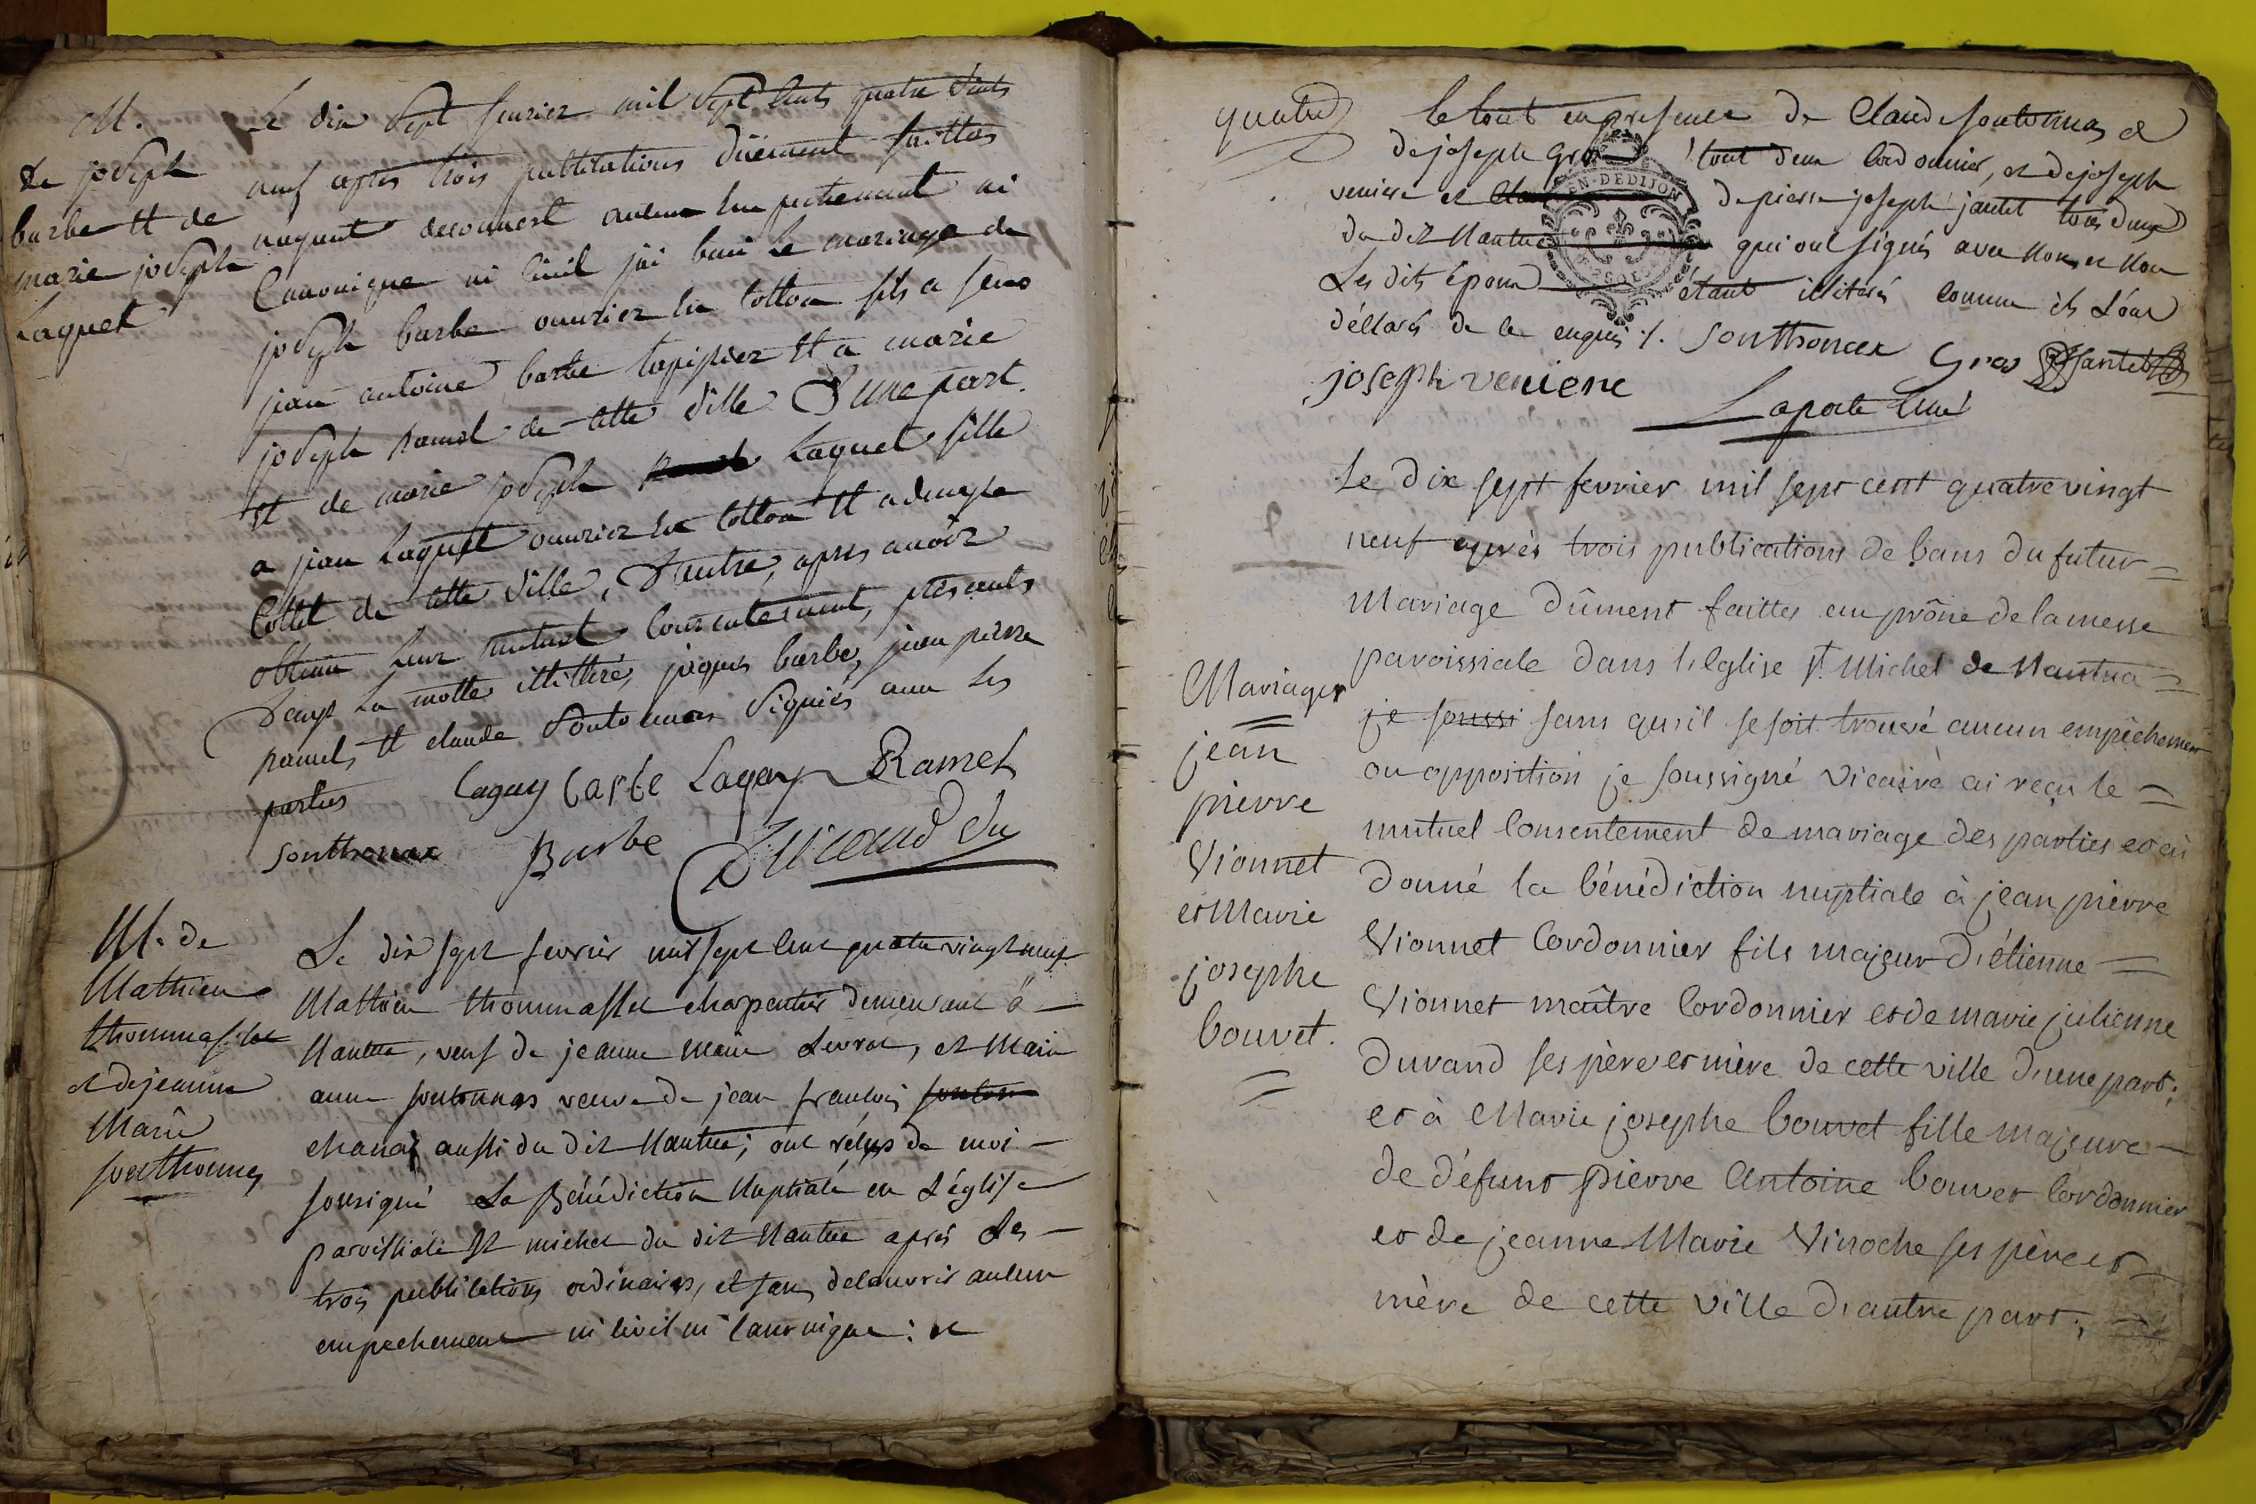 M.
de joseph
barbe et de
marie joseph
Laquet
Le dix sept fevrier mil sept cents quatre vints
neuf apres trois publications düement faittes
nayant decouvert aucun empechement ni
Canonique ni civil jai beni le mariage de
joseph barbe ouvrier en cotton fils a feus
jean antoine barbe tapissier et a marie
joseph ramel de cette ville d'une part.
et de marie joseph Laquet fille
a jean Laquet ouvrier en cotton et a
Cottet de cette ville, d'autre, apres avoir
obtenu leur mutuel consentement, presents
la motte illittiré, jaques barbe, jean pierre
ramel, et claude Sontonnax signiés avec les
parties Lagay Laguy Ramel
Sonthonax Barbe
M. de
Mathieu
thommasset
et de jeanne
Marie
sonthonnas
Le dix sept fevrier mil sept cent quatre vingt neuf
Mathieu thommasset charpentier demeurant à
Nantua, veuf de jeanne Marie Levrat, et Marie
anne sontonnas veuve de jean françois sonton
chanay aussi du dit Nantua; ont reçus de moi
sousigné La Bénédiction Nuptiale en L'église
paroissiale St michel du dit Nantua après Les
trois publications ordinaires, et sans decouvrir aucun
empechement ni civil ni canonique: et
quatre
le tout en presence de Claude sontonnas et
de joseph gros tout deux cordonnier, et de joseph
veniere et de pierre joseph jantet tous deux
du dit Nantua qui ont signés avec nous et non
Les dits Epoux étant illiterés comme ils L'ont
déclaré de ce enquis /. Sonthonax Gros Jantet
joseph veniere
Laporte Curé
Le Dix sept fevrier mil sept cent quatre vingt
neuf après trois publications de bans du futur
Mariage dûment faittes au prône de la messe
paroissiale dans l'Eglise St. Michel de Nantua
je soussi sans qu'il se soit trouvé aucun empêchement
ou opposition je soussigné Vicaire ai reçu le
mutuel Consentement de mariage des parties et ai
Donné la bénédiction nuptiale à jean pierre
Vionnet Cordonnier fils majeur D'étienne
Vionnet maître Cordonnier et de marie julienne
Durand ses père et mère de cette ville d'une part;
et à Marie josephe bouvet fille majeure
de défunt pierre Antoine bouvet Cordonnier
et de jeanne Marie Vinoche ses père et
mère de cette ville d'autre part;
Mariage
jean
pierre
Vionnet
et Marie
josephe
bouvet.